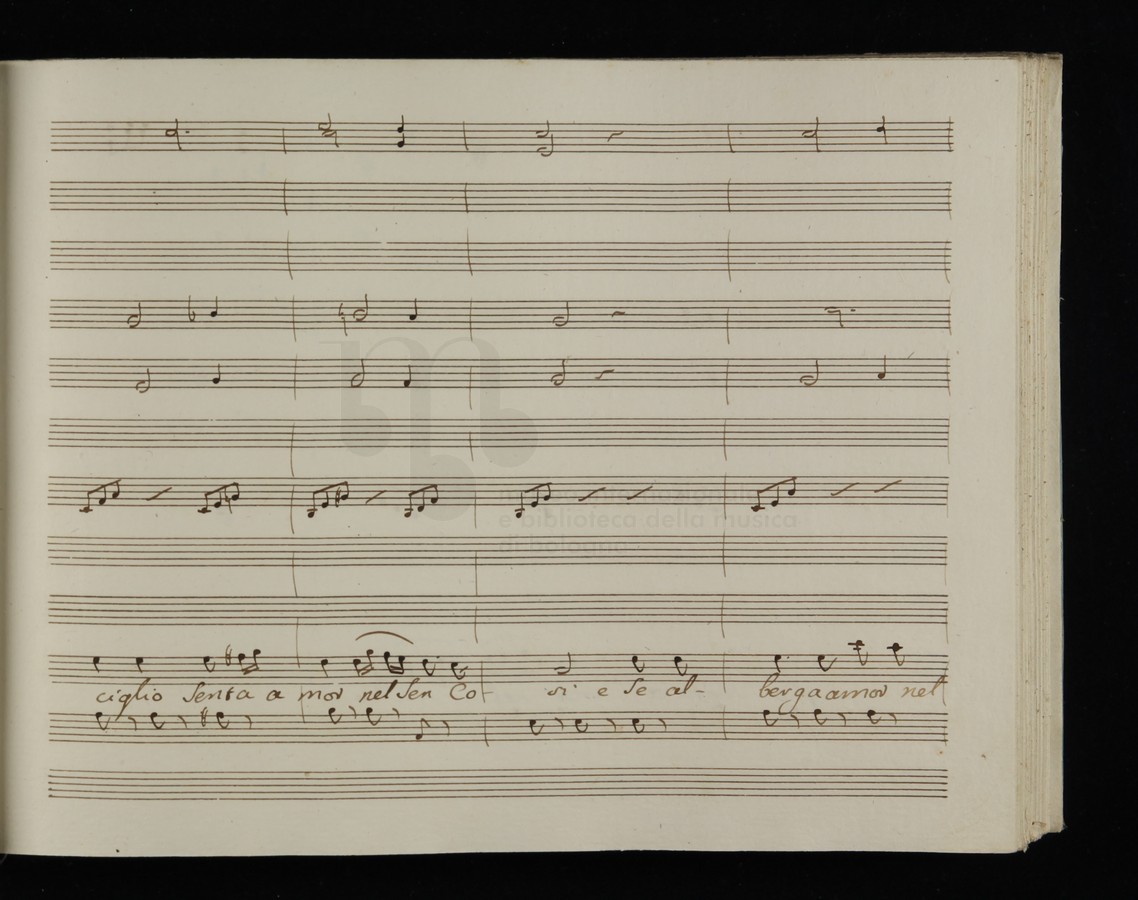 museo internazionale
e biblioteca della musica
di bologna
ciglio senta a mor nel sen Co- si e se al- berga amor nel